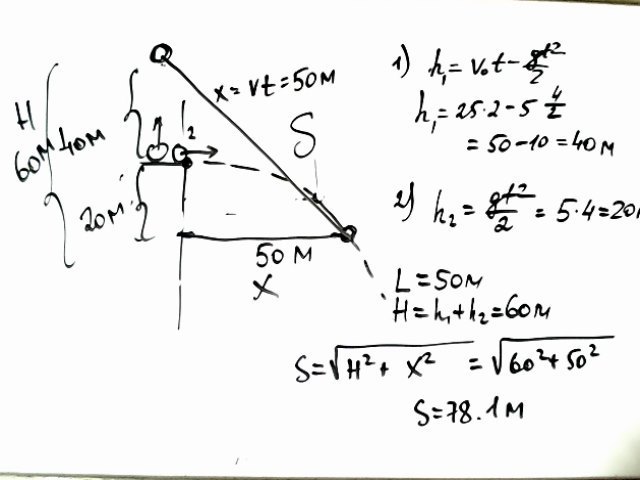 H
60м
40м
20м
2
x = vt = 50м
S
50 м
X
1) h₁ = v₀t - gt²/2
h₁ = 25·2 - 5 4/2
= 50 - 10 = 40м
2) h₂ = gt²/2 = 5·4 = 20м
L = 50м
H = h₁ + h₂ = 60м
S = √H² + X² = √60² + 50²
S = 78.1м